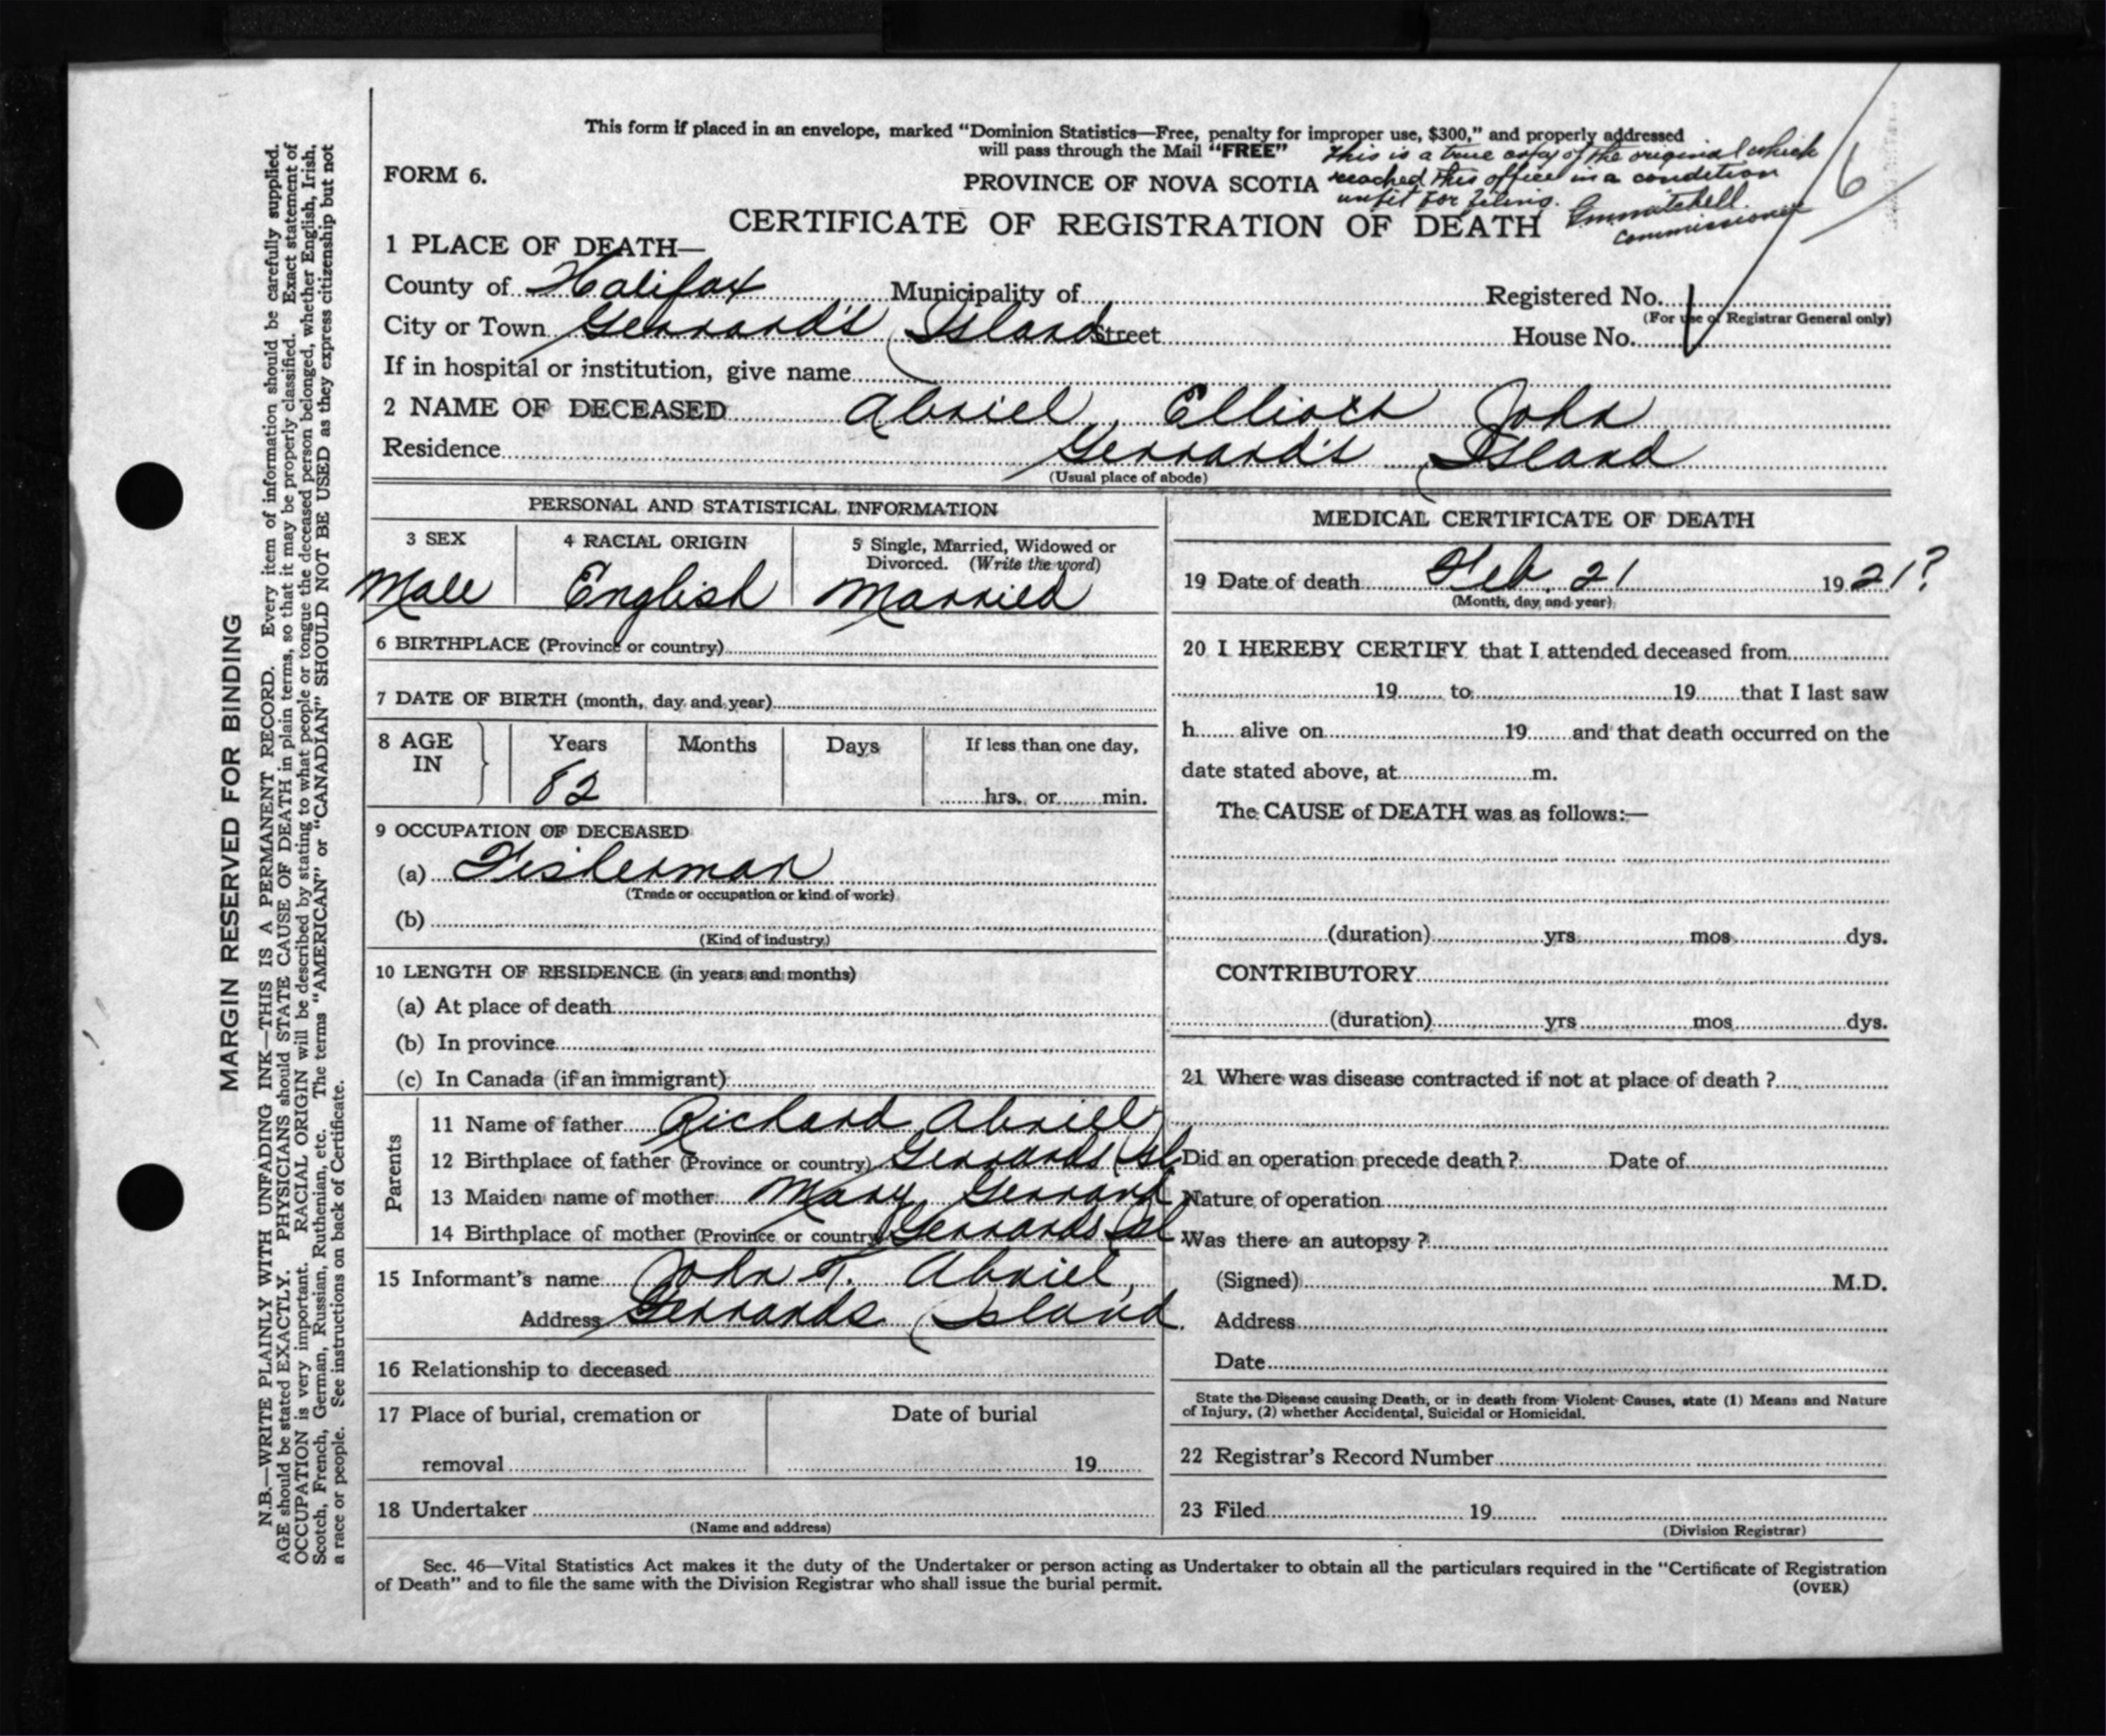 This form if placed in an envelope, marked "Dominion Statistics—Free, penalty for improper use, $300," and properly addressed
will pass through the Mail "FREE"
FORM 6.
PROVINCE OF NOVA SCOTIA
This is a true copy of the original which
reached this office in a condition
unfit for filing.
Commissioner
6
CERTIFICATE OF REGISTRATION OF DEATH
1 PLACE OF DEATH—
County of Halifax Municipality of Registered No.
(For use of Registrar General only)
City or Town Gerrard's Island Street House No.
If in hospital or institution, give name
2 NAME OF DECEASED Abriel, Elliott John
Residence Gerrard's Island
(Usual place of abode)
PERSONAL AND STATISTICAL INFORMATION
3 SEX
Male
4 RACIAL ORIGIN
English
5 Single, Married, Widowed or
Divorced. (Write the word)
Married
6 BIRTHPLACE (Province or country)
7 DATE OF BIRTH (month, day and year)
8 AGE IN
Years Months Days If less than one day,
82 hrs. or min.
9 OCCUPATION OF DECEASED
(a) Fisherman
(Trade or occupation or kind of work)
(b)
(Kind of industry)
10 LENGTH OF RESIDENCE (in years and months)
(a) At place of death
(b) In province
(c) In Canada (if an immigrant)
Parents
11 Name of father Richard Abriel
12 Birthplace of father (Province or country) Gerrards Isl
13 Maiden name of mother Mary Gerrard
14 Birthplace of mother (Province or country) Gerrards Isl
15 Informant's name John T. Abriel,
Address Gerrards Island.
16 Relationship to deceased
17 Place of burial, cremation or Date of burial
removal 19
18 Undertaker
(Name and address)
MEDICAL CERTIFICATE OF DEATH
19 Date of death Feb. 21 1921?
(Month, day, and year)
20 I HEREBY CERTIFY that I attended deceased from
19 to 19 that I last saw
h alive on 19 and that death occurred on the
date stated above, at m.
The CAUSE of DEATH was as follows:—
(duration) yrs. mos. dys.
CONTRIBUTORY
(duration) yrs. mos. dys.
21 Where was disease contracted if not at place of death ?
Did an operation precede death ? Date of
Nature of operation
Was there an autopsy ?
(Signed) M.D.
Address
Date
State the Disease causing Death, or in death from Violent Causes, state (1) Means and Nature
of Injury, (2) whether Accidental, Suicidal or Homicidal.
22 Registrar's Record Number
23 Filed 19
(Division Registrar)
Sec. 46—Vital Statistics Act makes it the duty of the Undertaker or person acting as Undertaker to obtain all the particulars required in the "Certificate of Registration
of Death" and to file the same with the Division Registrar who shall issue the burial permit.
(OVER)
MARGIN RESERVED FOR BINDING
N.B.—WRITE PLAINLY WITH UNFADING INK—THIS IS A PERMANENT RECORD. Every item of information should be carefully supplied.
AGE should be stated EXACTLY. PHYSICIANS should STATE CAUSE OF DEATH in plain terms, so that it may be properly classified. Exact statement of
OCCUPATION is very important. RACIAL ORIGIN will be described by stating to what people or tongue the deceased person belonged, whether English, Irish,
Scotch, French, German, Russian, Ruthenian, etc. The terms "AMERICAN" or "CANADIAN" SHOULD NOT BE USED as they express citizenship but not
a race or people. See instructions on back of Certificate.